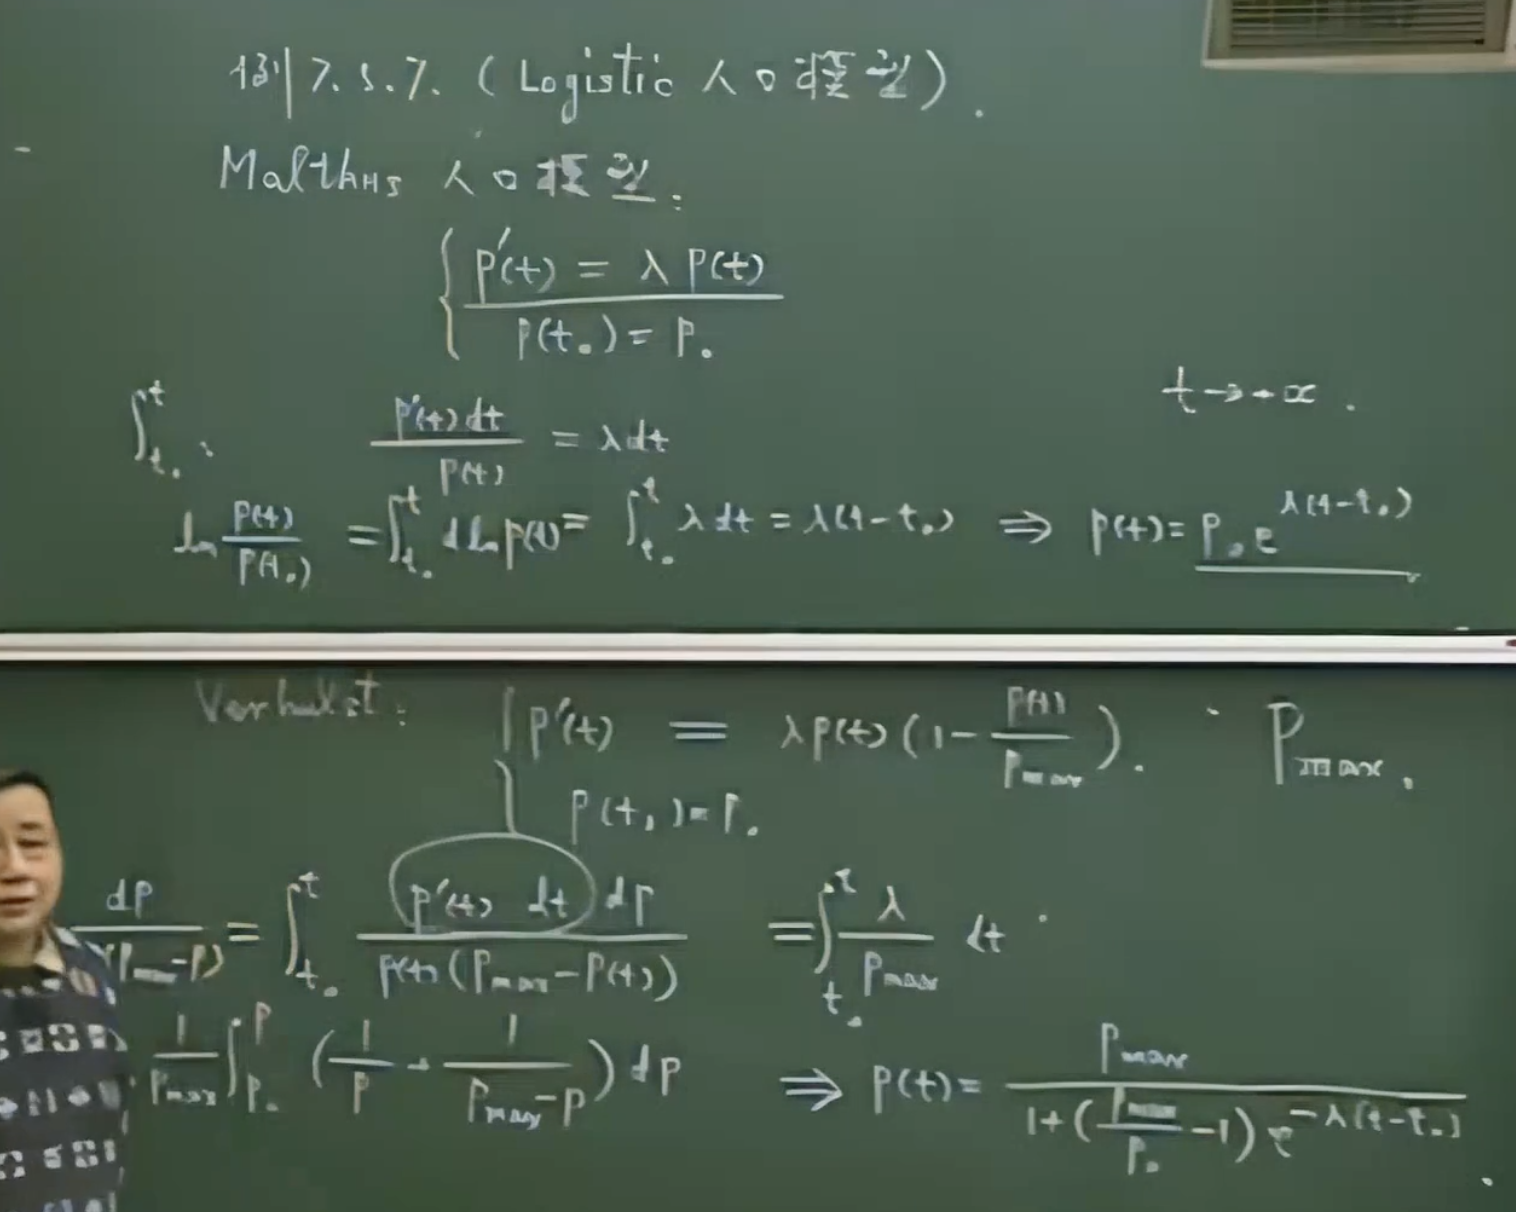 例7.5.7. (Logistic 人口模型).
Malthus 人口模型:
{ p'(t) = λ p(t)
p(t₀) = p₀
t → +∞.
∫_{t₀}^{t} : p'(t) dt / p(t) = λ dt
ln p(t)/p(t₀) = ∫_{t₀}^{t} d ln p(t) = ∫_{t₀}^{t} λ dt = λ(t-t₀) ⇒ p(t) = p₀ e^{λ(t-t₀)}
Verhulst: { p'(t) = λ p(t) (1 - p(t)/p_max). P_max.
p(t₀) = p₀.
dp / (p_max - p) = ∫_{t₀}^{t} p'(t) dt dp / p(t)(p_max - p(t)) = ∫_{t₀}^{t} λ/p_max dt
1/p_max ∫_{p₀}^{p} (1/p + 1/(p_max - p)) dp ⇒ p(t) = p_max / (1 + (p_max/p₀ - 1) e^{-λ(t-t₀)}).